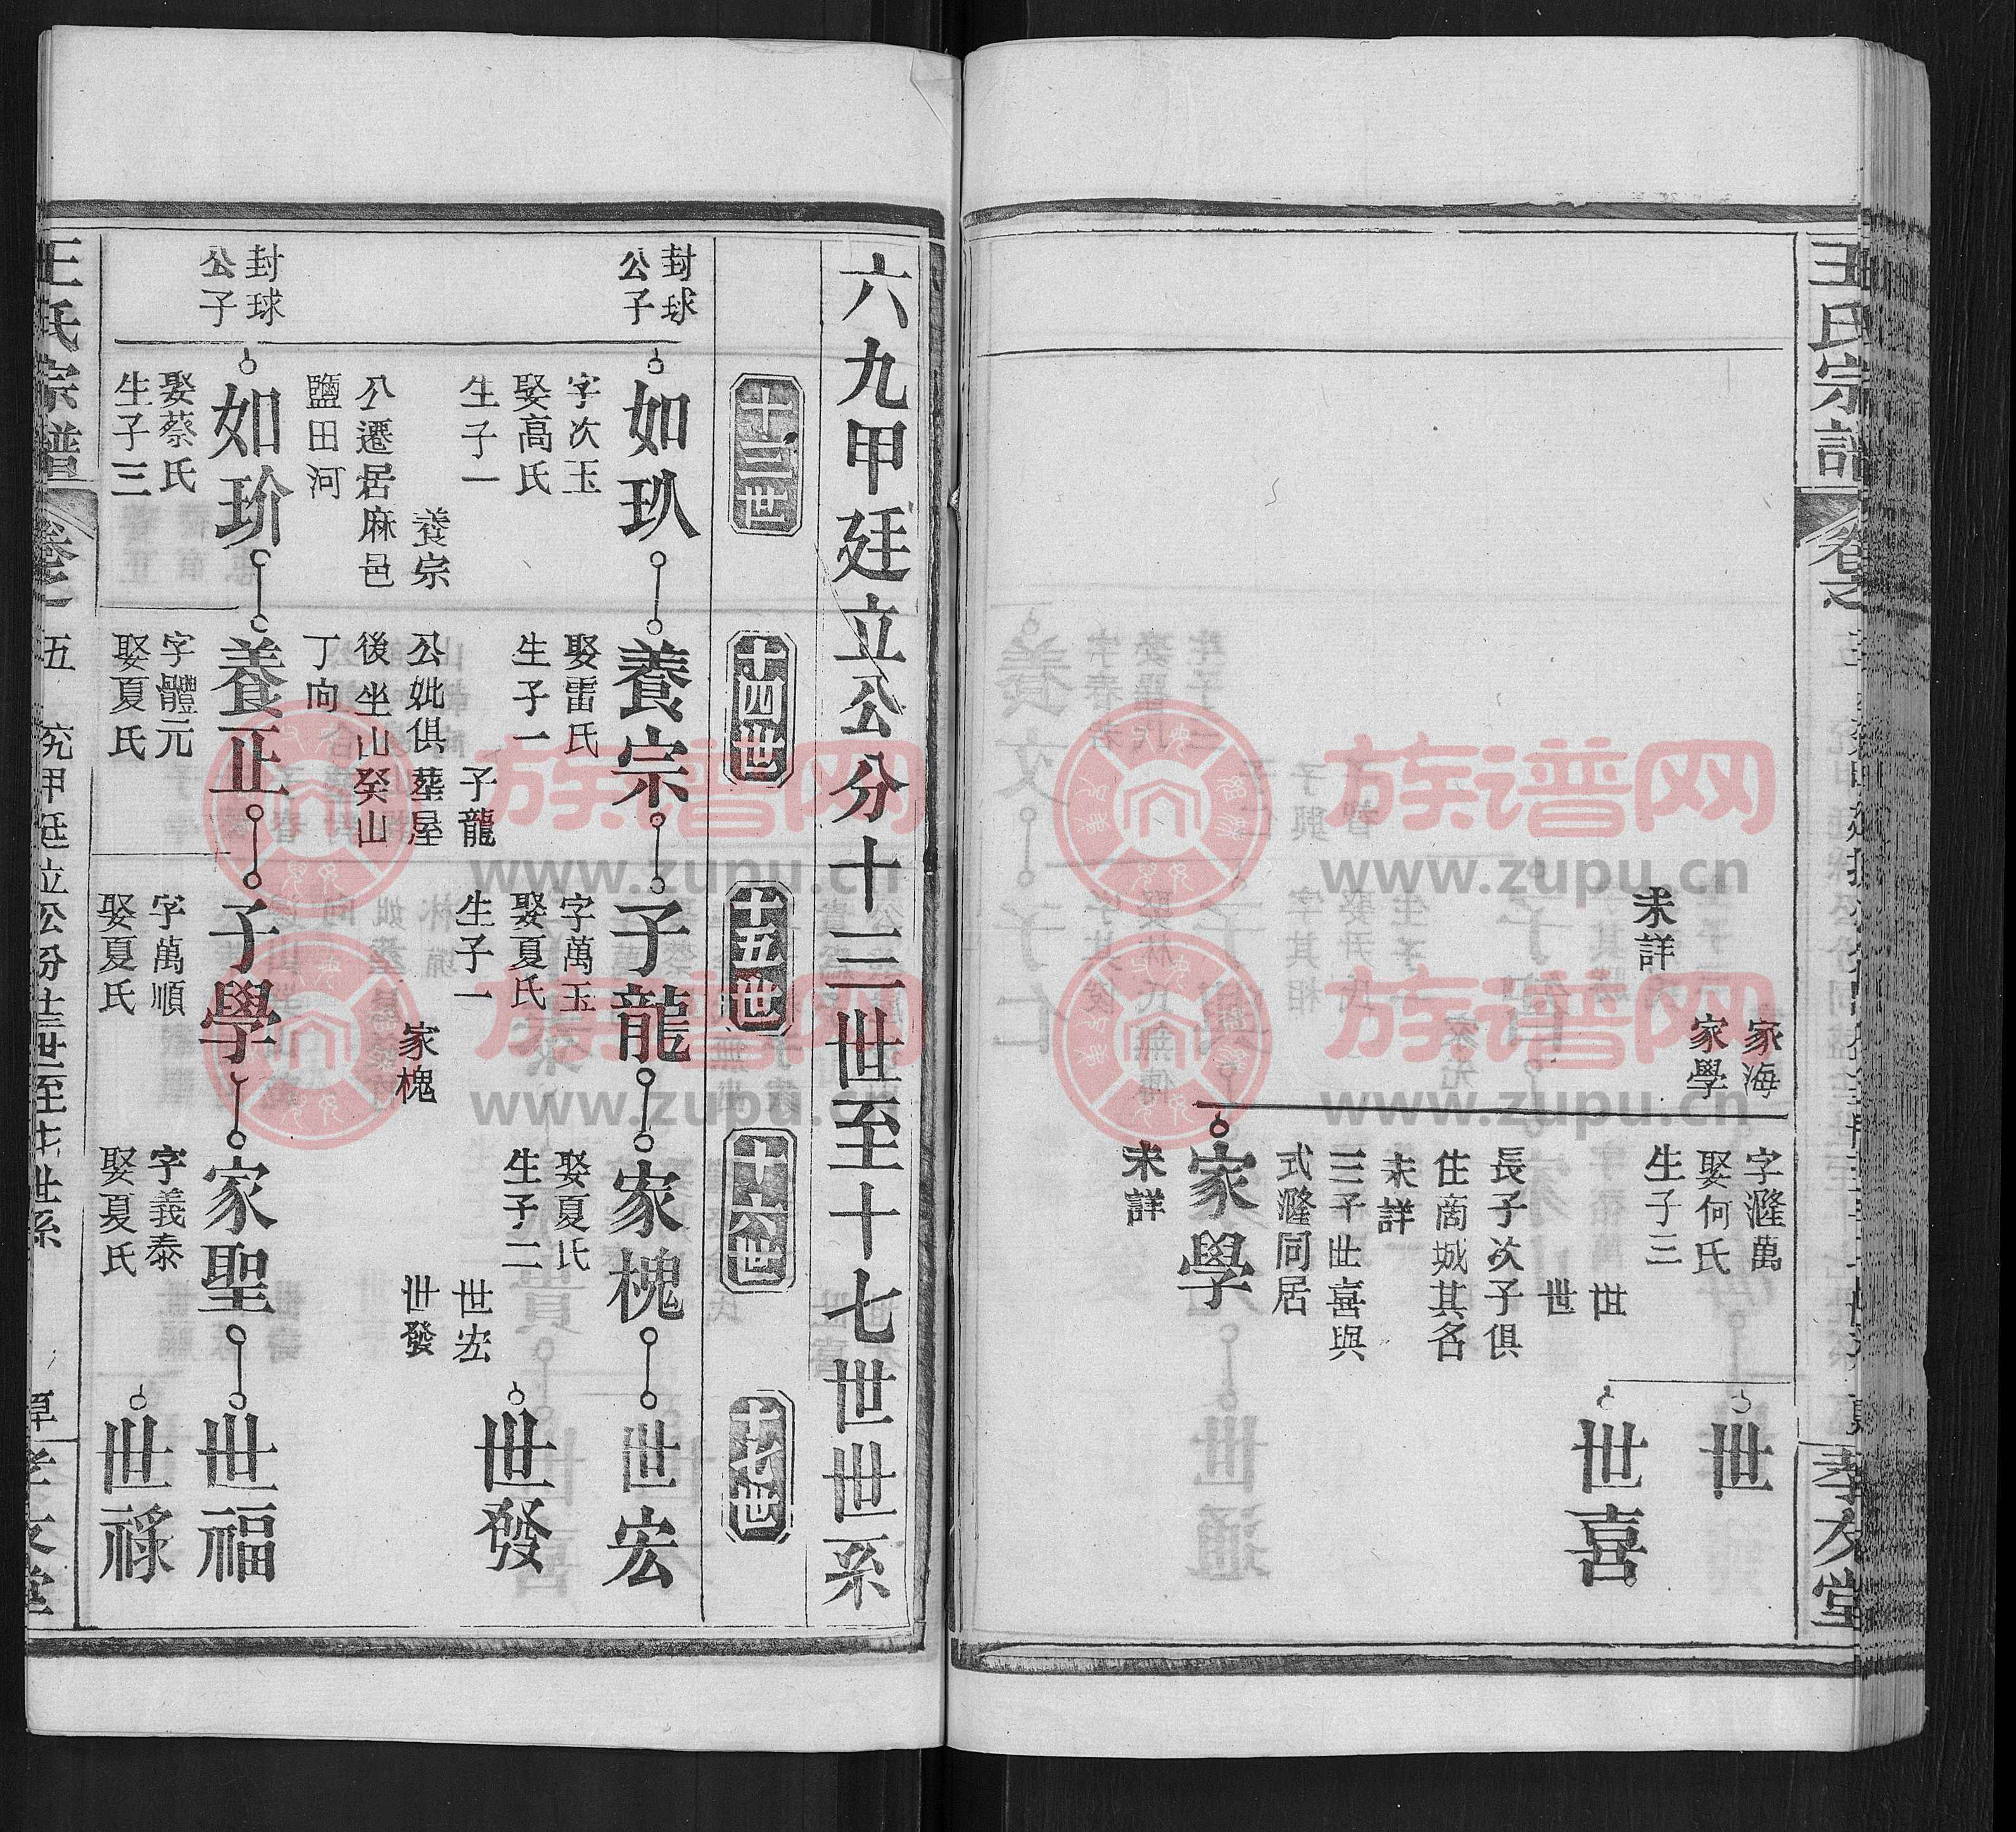 王氏宗譜
孝友堂
家海
家學
未詳
字漋萬
娶何氏
生子三
世
世
長子次子俱
住商城其名
未詳
三子世喜與
式漋同居
世
世喜
家學
未詳
六九甲廷立公分十三世至十七世世系
十三世
十四世
十五世
十六世
十七世
封球
公子
如玖
字次玉
娶高氏
生子一
養宗
公遷居麻邑
鹽田河
養宗
娶雷氏
生子一
子龍
公妣俱塟屋
後坐山癸山
丁向
子龍
字萬玉
娶夏氏
生子一
家槐
家槐
娶夏氏
生子二
世宏
世發
世宏
世發
封球
公子
如玠
娶蔡氏
生子三
養正
字體元
娶夏氏
子學
字萬順
娶夏氏
家聖
字義泰
娶夏氏
世福
世祿
王氏宗譜
卷之
五
甲廷立公分
世至
世系
族谱网
www.zupu.cn
族谱网
www.zupu.cn
族谱网
www.zupu.cn
族谱网
www.zupu.cn